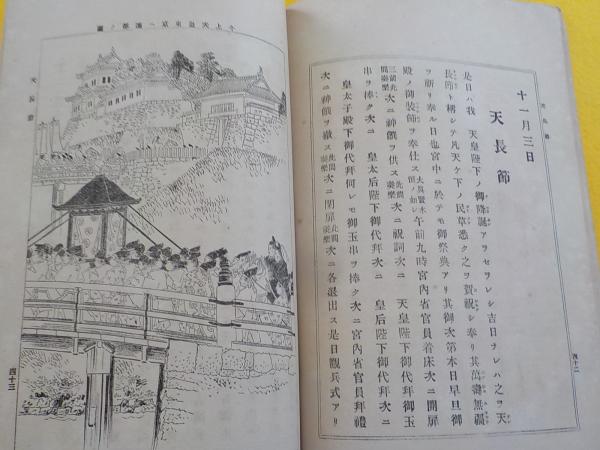 天長節
十一月三日
天長節
是日ハ我　天皇陛下ノ御降誕アラセラレシ吉日ナレハ之ヲ天
長節ト稱シテ凡天ケ下ノ民草悉ク之ヲ賀祝シ奉リ其萬壽無疆
ヲ祈リ奉ル日也宮中ニ於テモ御祭典アリ其御次第本日早旦御
殿ノ御裝飾ヲ奉仕ス午前九時宮內省官員着床次ニ開扉
此間奏樂次ニ神饌ヲ供ス此間奏樂次ニ祝詞次ニ　天皇陛下御代拜御玉
串ヲ捧ク次ニ　皇太后陛下御代拜次ニ　皇后陛下御代拜次ニ
皇太子殿下御代拜何レモ御玉串ヲ捧ク次ニ宮內省官員拜禮
次ニ神饌ヲ撤ス此間奏樂次ニ閉扉此間奏樂次ニ各退出ス是日觀兵式アリ
四十二
今上天皇東京ヘ遷都ノ圖
天長節
四十三